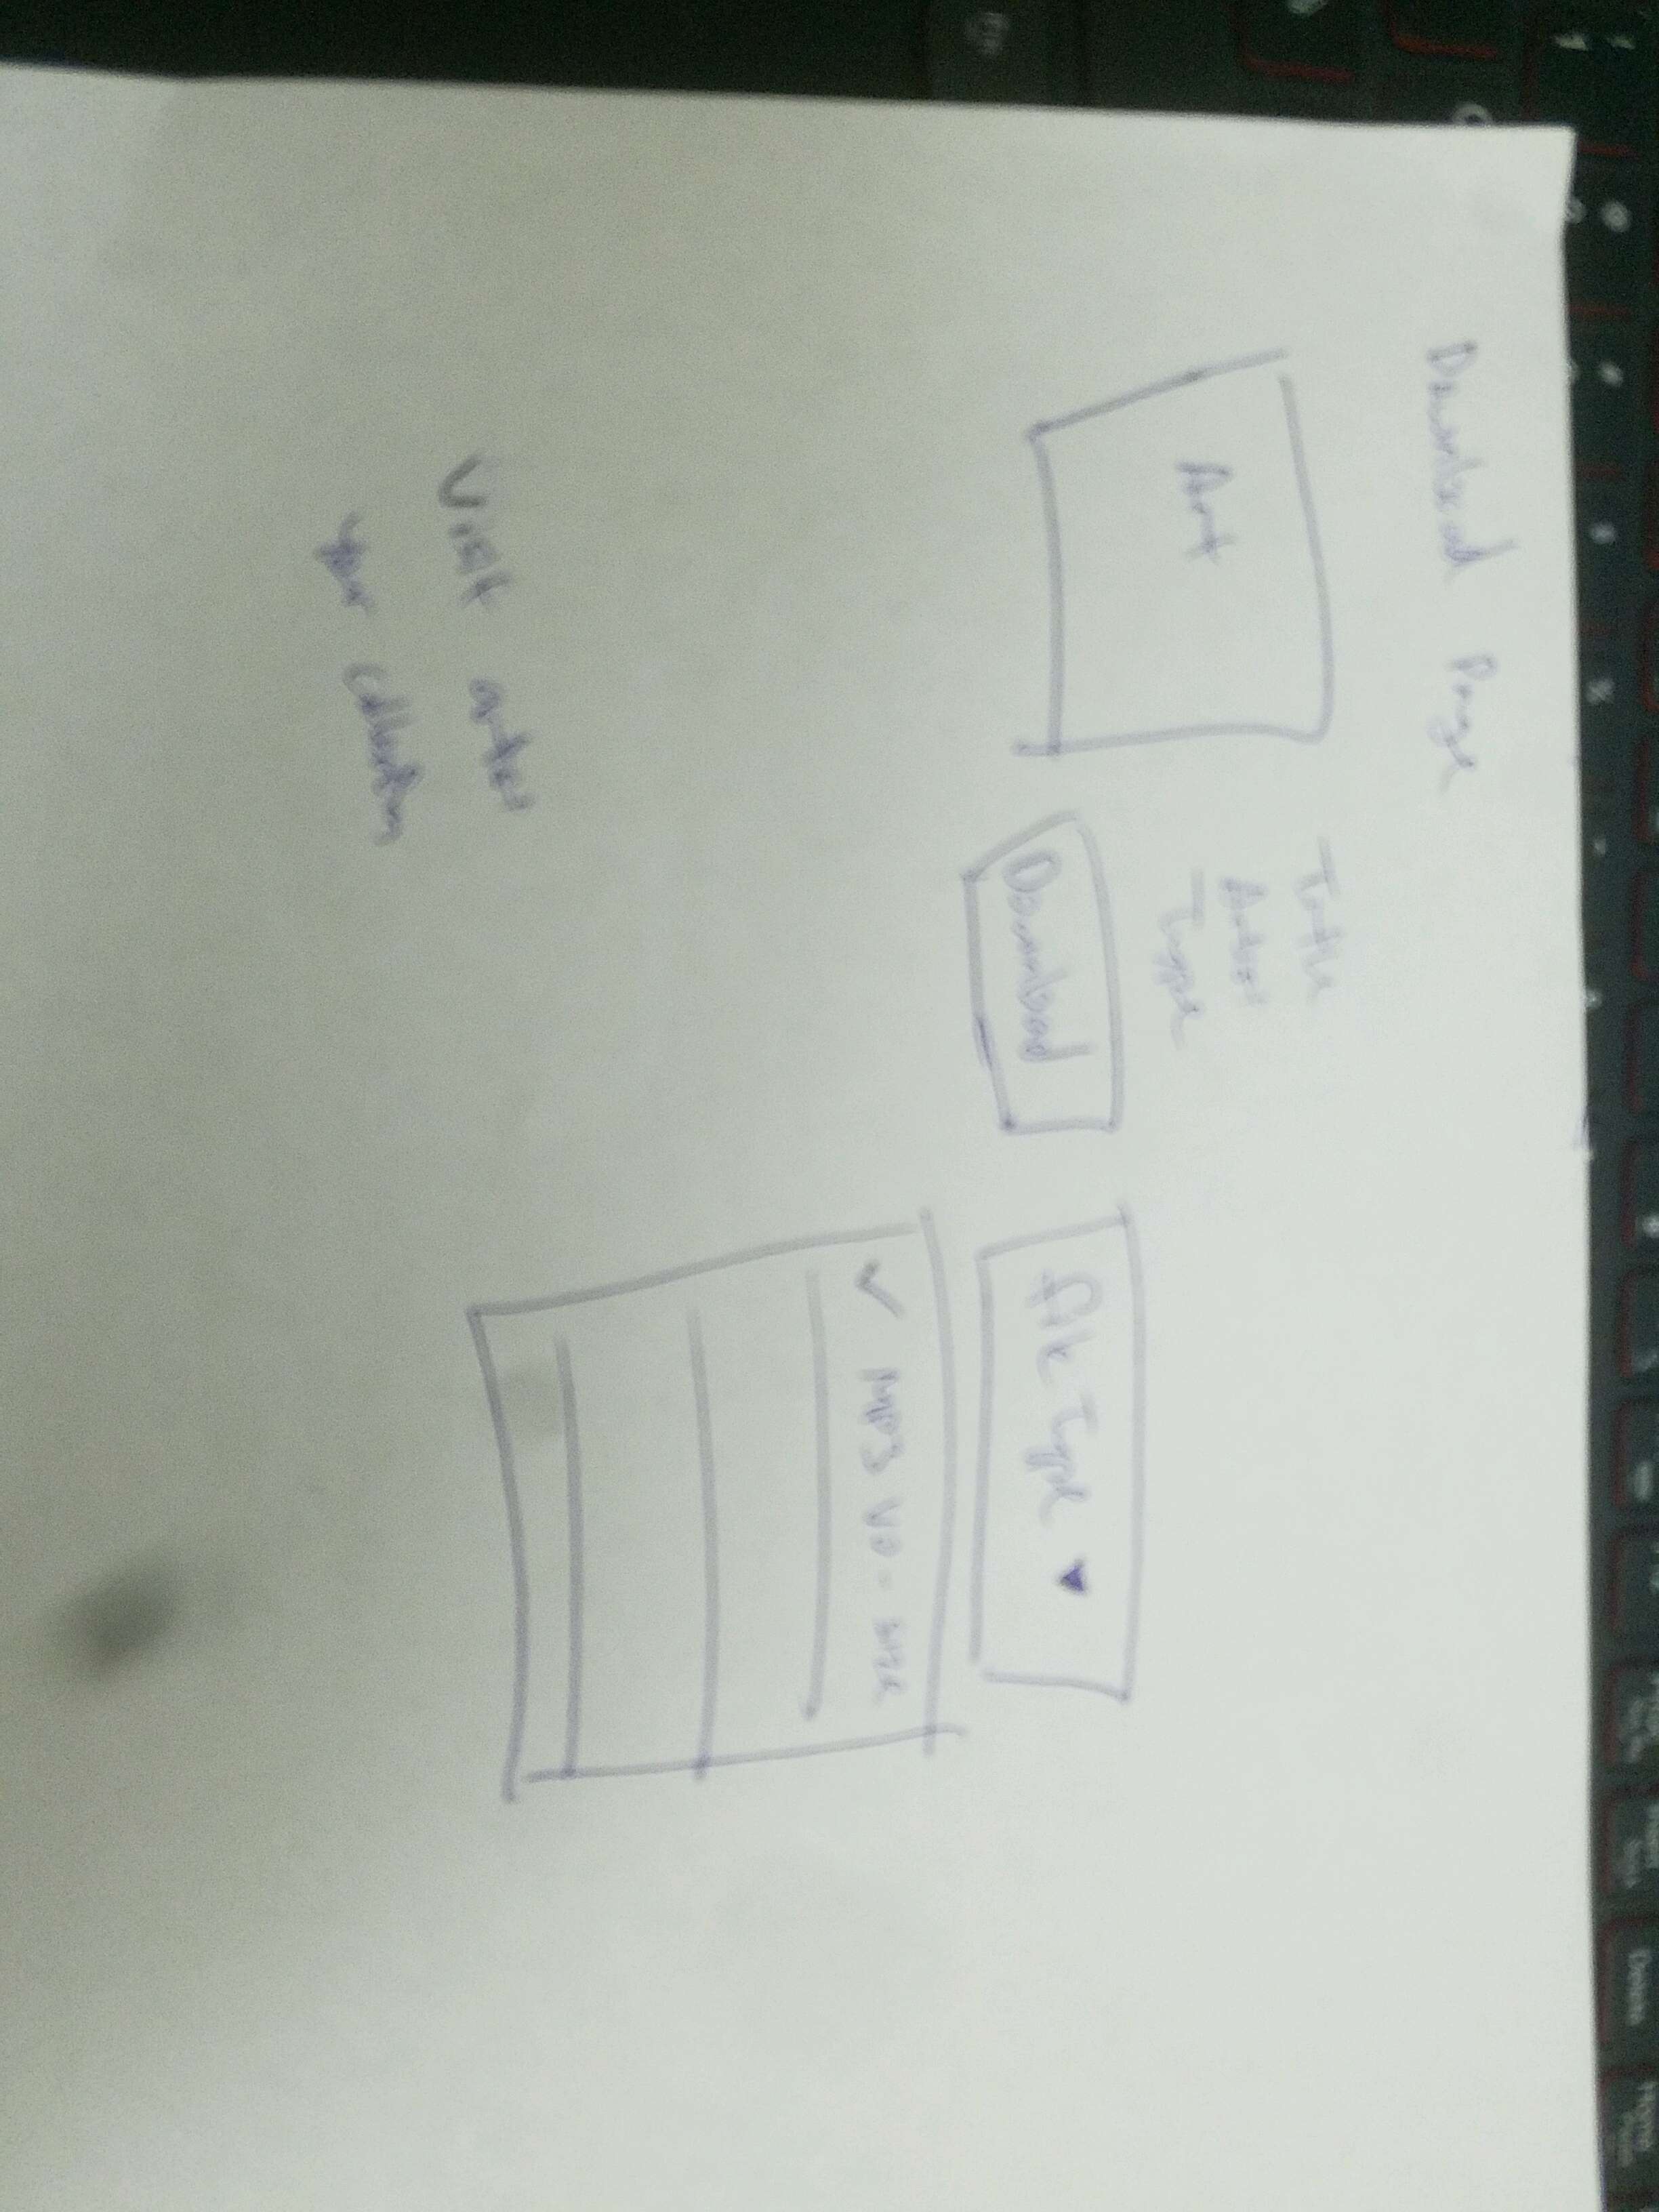 Download Page
Art
Title
Artist
Type
Download
file Type
✓ MP3 V0 - size
Visit artist
your collection
Delete
Home